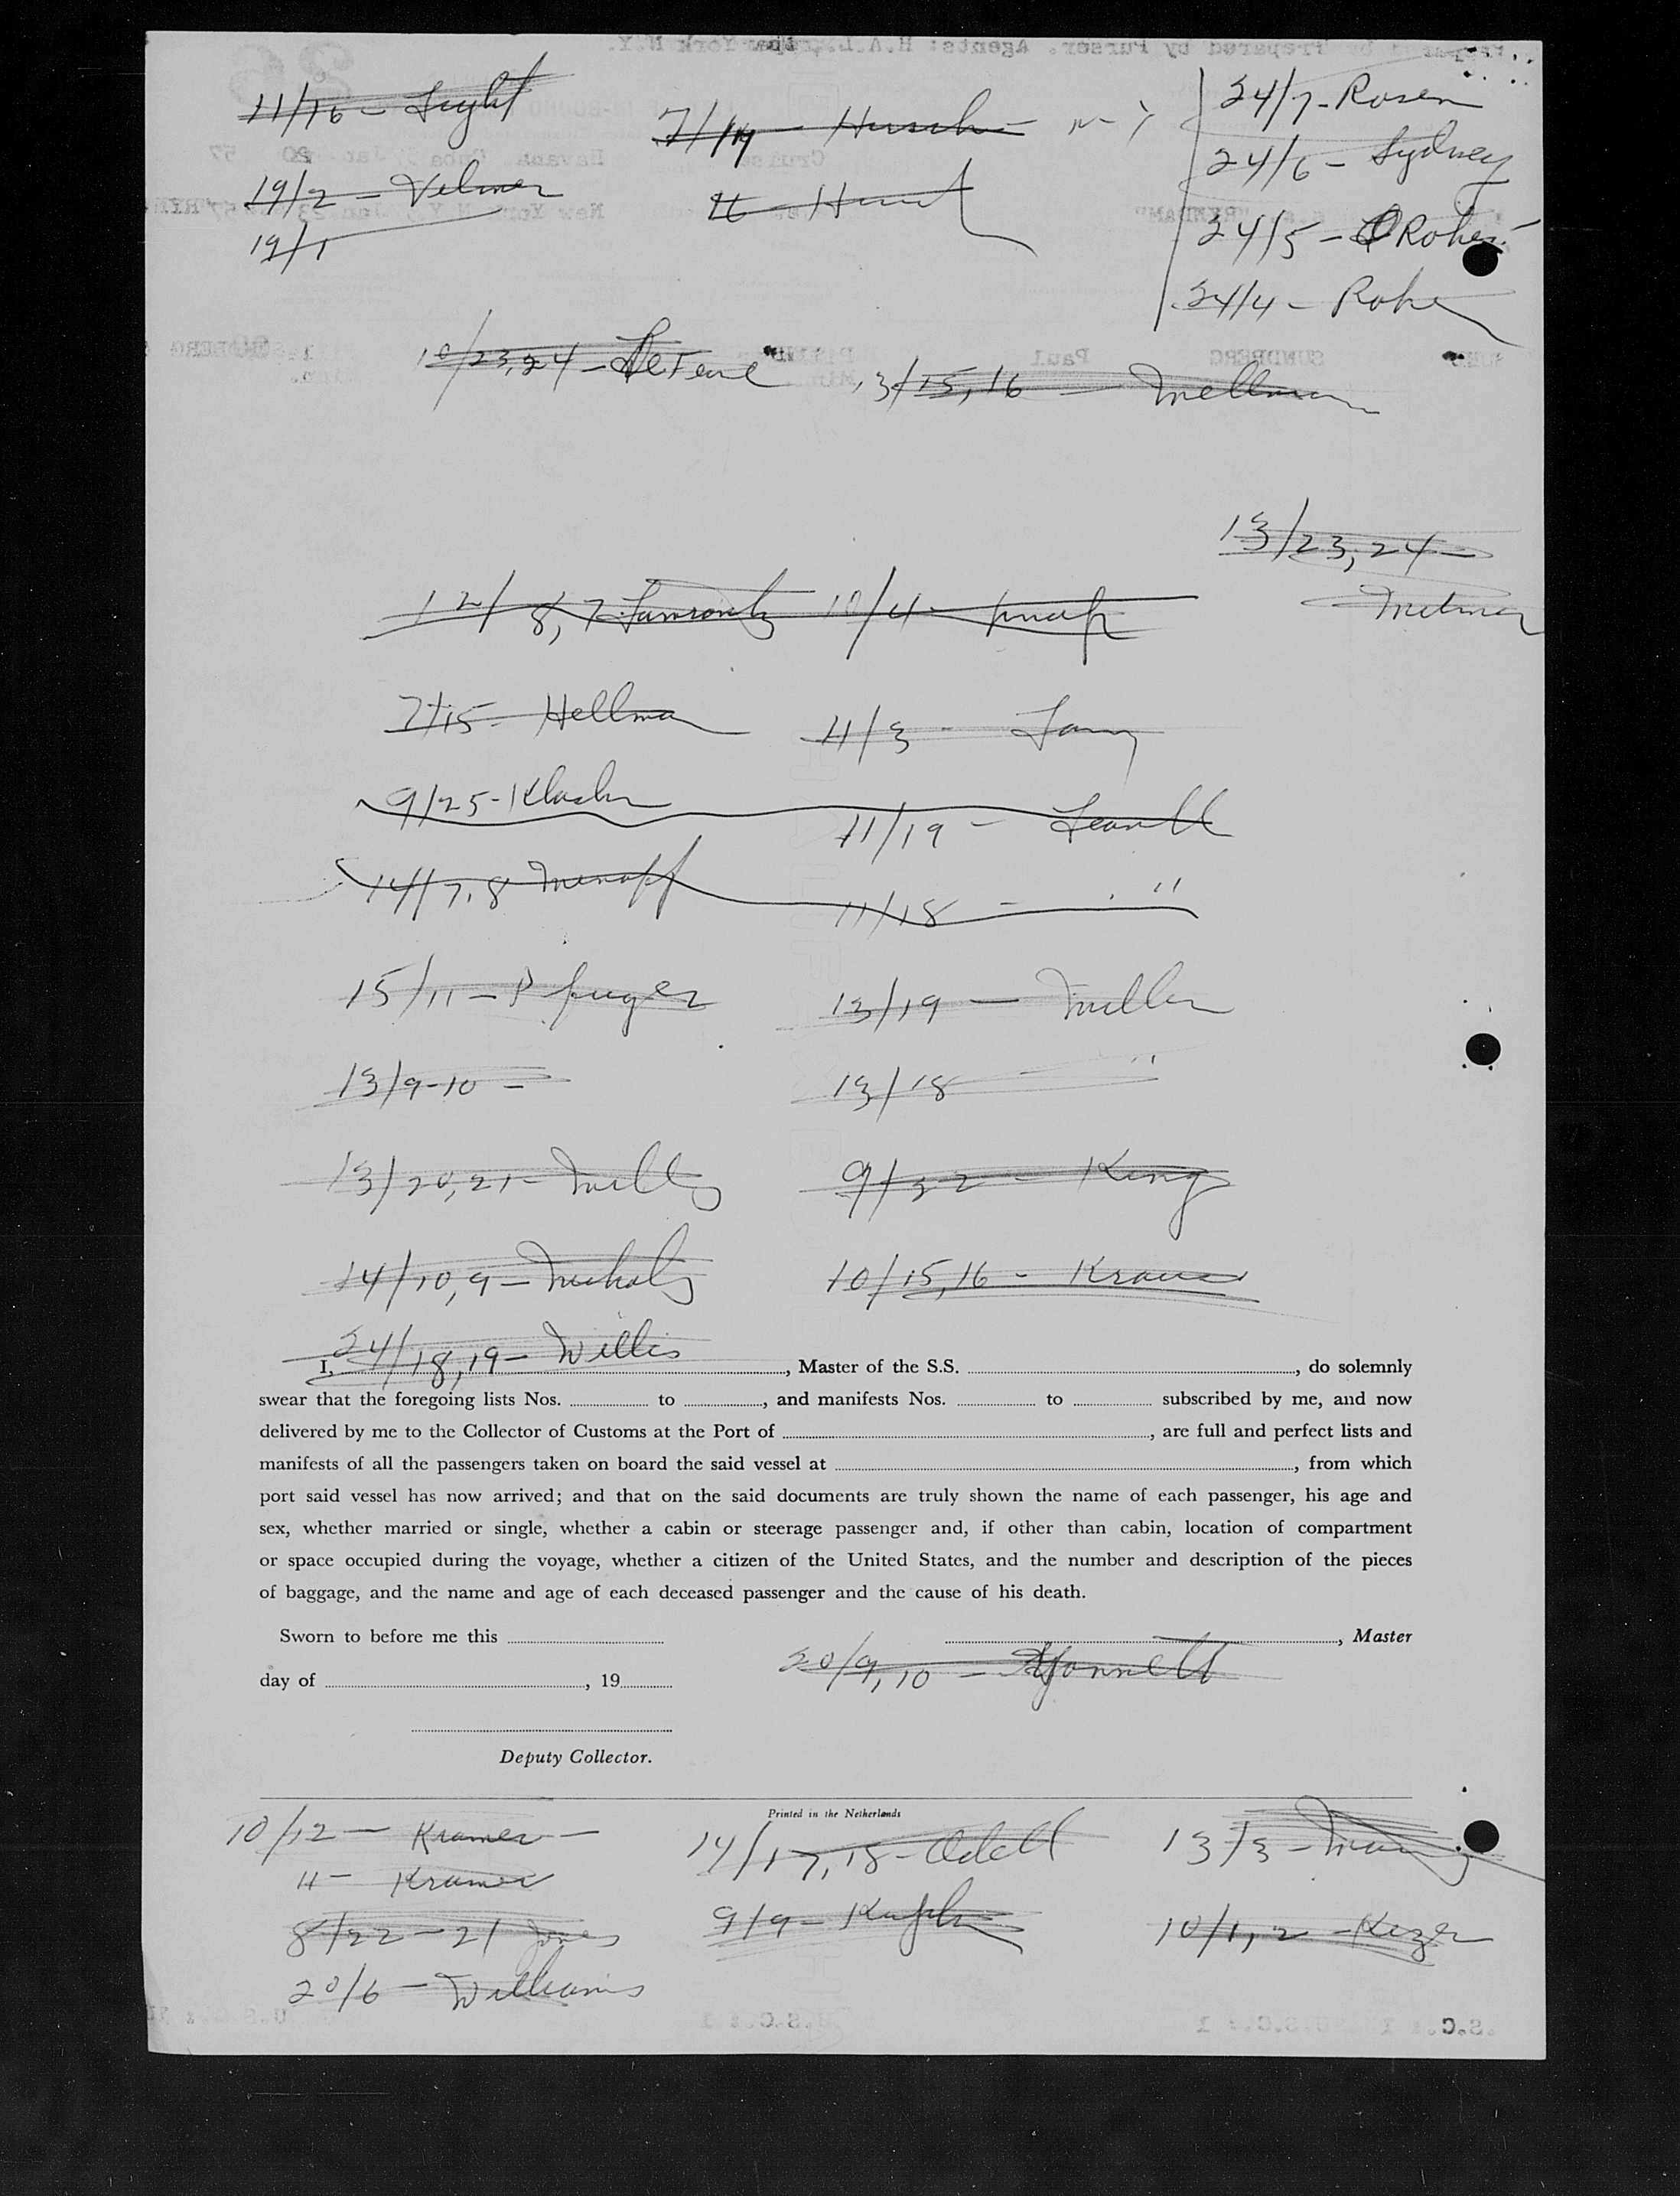 11/16 - Light
19/2 - Velmer
19/1
7/
24/7 - Rosen
24/6 - Sydney
24/5 - Roher
24/4 - Roher
10/23, 24 -
13/15, 16 - Mellman
13/23, 24 -
12/8, 7
10/4 - Knapp
7/15 - Hellman
11/3 -
9/25 -
11/19 -
14/7, 8
11/18 - "
15/11 -
13/19 - Miller
13/9-10 -
13/18 - "
13/20, 21 - Mills
9/22 - King
14/10, 9 - Nichols
10/15, 16 - Kraus
24/18, 19 - Willis
I, , Master of the S.S. , do solemnly
swear that the foregoing lists Nos. to , and manifests Nos. to subscribed by me, and now
delivered by me to the Collector of Customs at the Port of , are full and perfect lists and
manifests of all the passengers taken on board the said vessel at , from which
port said vessel has now arrived; and that on the said documents are truly shown the name of each passenger, his age and
sex, whether married or single, whether a cabin or steerage passenger and, if other than cabin, location of compartment
or space occupied during the voyage, whether a citizen of the United States, and the number and description of the pieces
of baggage, and the name and age of each deceased passenger and the cause of his death.
Sworn to before me this
, Master
20/9, 10 -
day of , 19
Deputy Collector.
Printed in the Netherlands
10/12 - Kramer -
11 - Kramer
8/22 - 21 Jones
20/6 - Williams
14/17, 18 - Odell
9/9 - Kaplan
13/3 -
10/1, 2 - Kezer